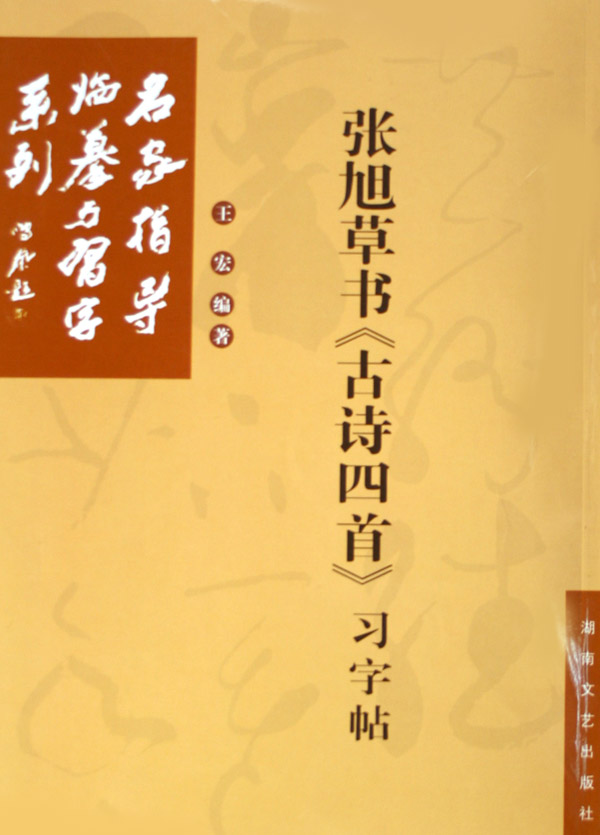 名家指导
临摹与习字
系列
王宏编著
张旭草书《古诗四首》习字帖
湖南文艺出版社